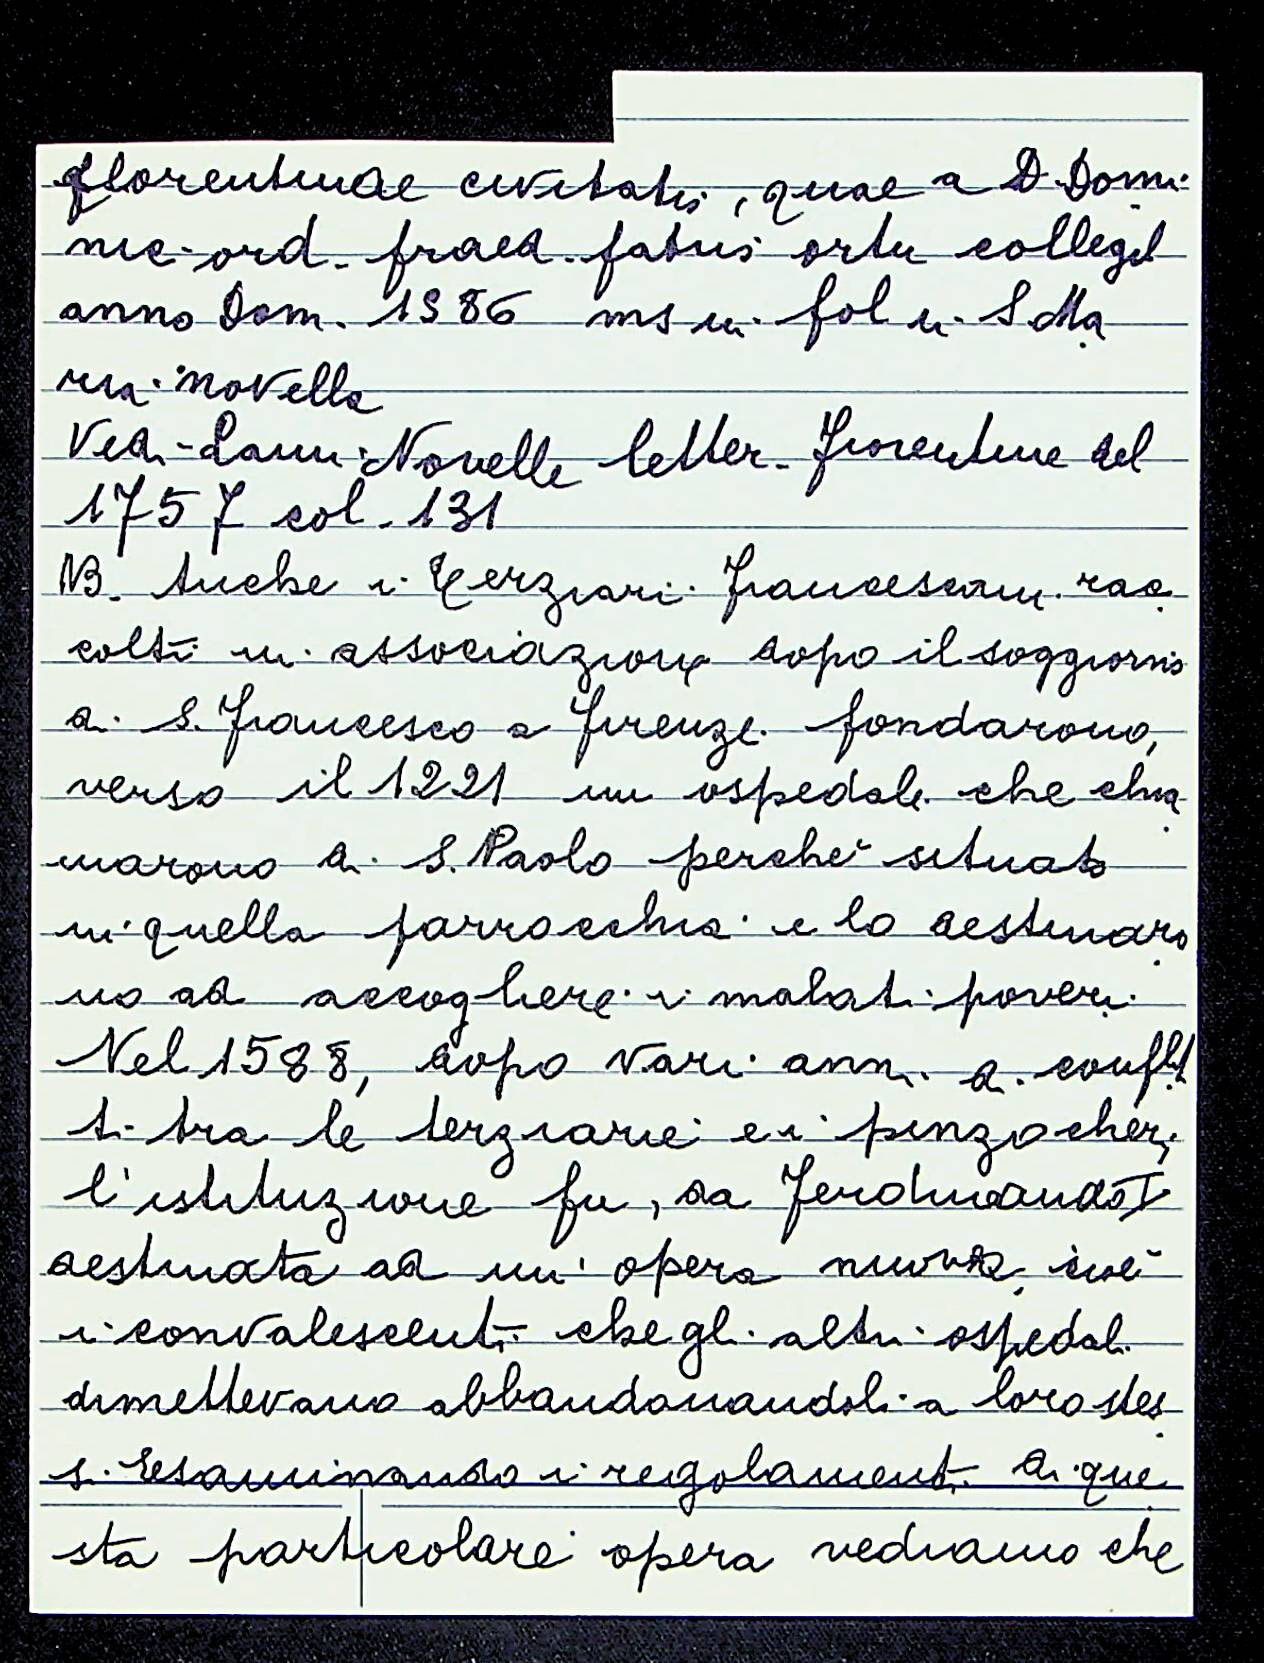 florentinae civitatis, quae a D. Domi
nic. ord. praed. patris ortu collegit
anno Dom. 1586 ms in fol in S. Ma
ria Novella
Ved. Lami Novelle letter. Fiorentine del
1757 col. 131
NB. Anche i Terziari Francescani rac
colti in associazione dopo il soggiorno
di S. Francesco a Firenze fondarono,
verso il 1221 un ospedale che chia
marono di S. Paolo perchè situato
in quella parrocchia e lo destinaro
no ad accogliere i malati poveri.
Nel 1588, dopo vari anni di conflit
ti tra le terziarie e i pinzocheri,
l'istituzione fu, da Ferdinando I
destinata ad un'opera nuova, cioè
i convalescenti che gli altri ospedali
dimettevano abbandonandoli a loro stes
si. Esaminando i regolamenti di que
sta particolare opera vediamo che